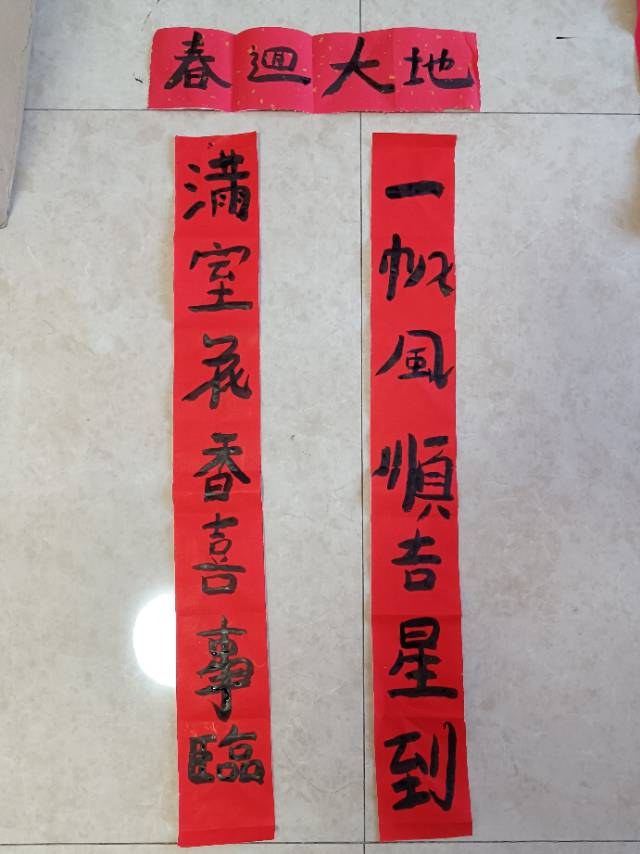 春迴大地
一帆風順吉星到
滿室花香喜事臨